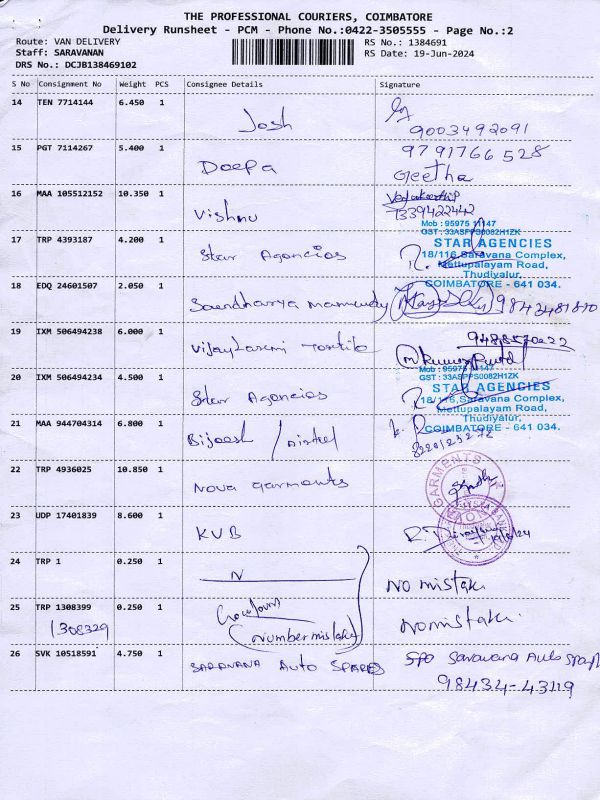 THE PROFESSIONAL COURIERS, COIMBATORE
Delivery Runsheet - PCM - Phone No.:0422-3505555 - Page No.:2
Route: VAN DELIVERY RS No.: 1384691
Staff: SARAVANAN RS Date: 19-Jun-2024
DRS No.: DCJB138469102
S No Consignment No Weight PCS Consignee Details Signature
14 TEN 7714144 6.450 1 Josh
9003492091
15 PGT 7114267 5.400 1 Deepa 9791766528
Geetha
16 MAA 105512152 10.350 1 Vishnu
7339422442
Mob : 95975 11147
GST : 33ASPPS0082H1ZK
17 TRP 4393187 4.200 1 Star Agencies STAR AGENCIES
18/116,Saravana Complex,
Mettupalayam Road,
Thudiyalur,
COIMBATORE - 641 034.
18 EDQ 24601507 2.050 1 9843481810
19 IXM 506494238 6.000 1 9488570222
Mob : 95975 11147
GST : 33ASPPS0082H1ZK
20 IXM 506494234 4.500 1 Star Agencies STAR AGENCIES
18/116,Saravana Complex,
Mettupalayam Road,
Thudiyalur,
COIMBATORE - 641 034.
21 MAA 944704314 6.800 1
22 TRP 4936025 10.850 1 Nova garments
GARMENTS
23 UDP 17401839 8.600 1 KVB
24 TRP 1 0.250 1 No mistak
25 TRP 1308399 0.250 1 No mistak
1308329 (number mistake)
26 SVK 10518591 4.750 1 SARAVANA Auto SPARES Saravana Auto
98434-43119